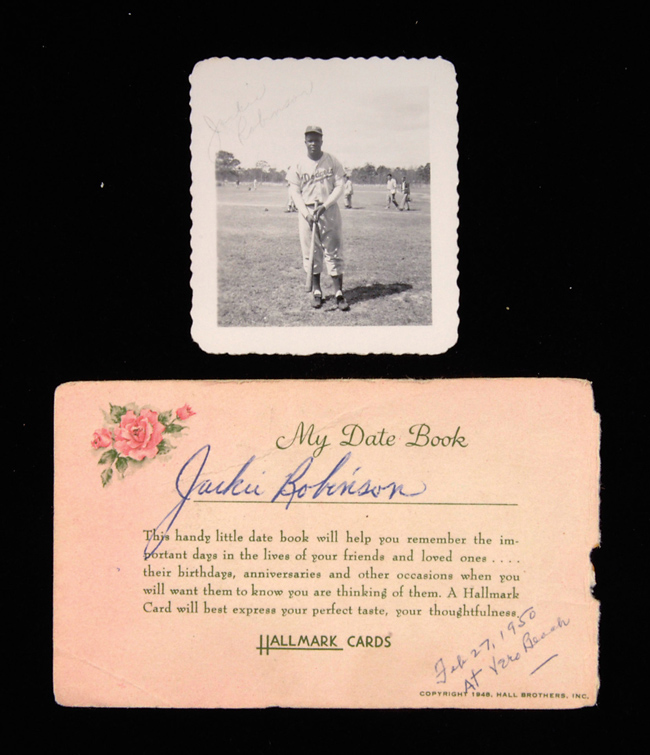 Jackie
Robinson
Dodgers
My Date Book
Jackie Robinson
This handy little date book will help you remember the im-
portant days in the lives of your friends and loved ones . . . .
their birthdays, anniversaries and other occasions when you
will want them to know you are thinking of them. A Hallmark
Card will best express your perfect taste, your thoughtfulness.
HALLMARK CARDS
Feb 27, 1950
At Vero Beach
COPYRIGHT 1948, HALL BROTHERS, INC.